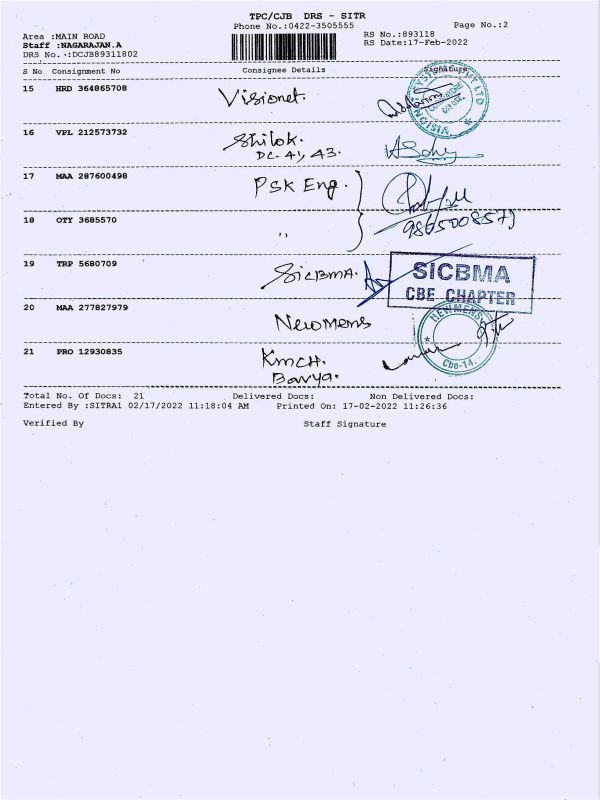 TPC/CJB DRS - SITR
Phone No.:0422-3505555
Page No.:2
Area :MAIN ROAD
RS No.:893118
Staff :NAGARAJAN.A
RS Date:17-Feb-2022
DRS No.:DCJB89311802
S No Consignment No Consignee Details Signature
15 HRD 364865708 Visionet.
16 VPL 212573732 Shilok.
DC-41, 43.
17 MAA 287600498 PSK Eng.
18 OTY 3685570 ,,
9865008579
19 TRP 5680709 SICBMA.
SICBMA
CBE CHAPTER
20 MAA 277827979 Newmens
NEWMENS
Cbe-14.
21 PRO 12930835 KMCH.
Total No. Of Docs: 21 Delivered Docs: Non Delivered Docs:
Entered By :SITRA1 02/17/2022 11:18:04 AM Printed On: 17-02-2022 11:26:36
Verified By Staff Signature